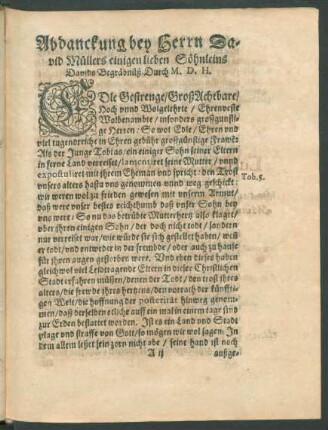 Abdanckung bey Herrn Da-
vid Müllers einigen lieben Söhnleins
Davids Begräbnüß Durch M. D. H.
EDle Gestrenge/ GroßAchtbare/
Hoch vnnd Wolgelehrte / Ehrenveste
Wolbenambte / insonders großgünsti-
ge Herren: So wol Edle/ Ehren vnd
viel tugendreiche in Ehren gebühr großgünstige Frawē
Als der Junge Tobias/ ein einiger Sohn seiner Eltern
in ferne Land verreiset/ lamentiret seine Mutter / vnnd
expostuliret mit ihrem Eheman vnd spricht: den Trost
vnsers alters hastu vns genommen vnnd weg geschickt:
wir weren wol zu frieden gewesen mit vnserm Armut/
daß were vnser bestes reichthumb daß vnser Sohn bey
vns were: So nu das betrübte Mutterhertz also klaget/
vber ihren einigen Sohn / der doch nicht todt/ sondern
nur verreiset war/ wie würde sie sich gestellet haben/ weñ
er todt/ vnd entweder in der frembde / oder auch zu hause
für ihren augen gestorben were. Vnd eben dieses haben
gleich wol viel Leidtragende Eltern in dieser Christlichen
Stadt erfahren müssen/ denen der Todt/ den trost ihres
alters/ die frewde ihres hertzens/ den vorrath der künffti-
gen Welt/ die hoffnung der posteritet hinweg genom-
men/ daß derselben etliche auff ein mal in einem tage sind
zur Erden bestattet worden. Ist es ein Land vnd Stadt
plage vnd straffe von Gott/ so mögen wir wol sagen: In
dem allem lesset sein zorn nicht abe / seine hand ist noch
A ij
außge-
Tob. 5.